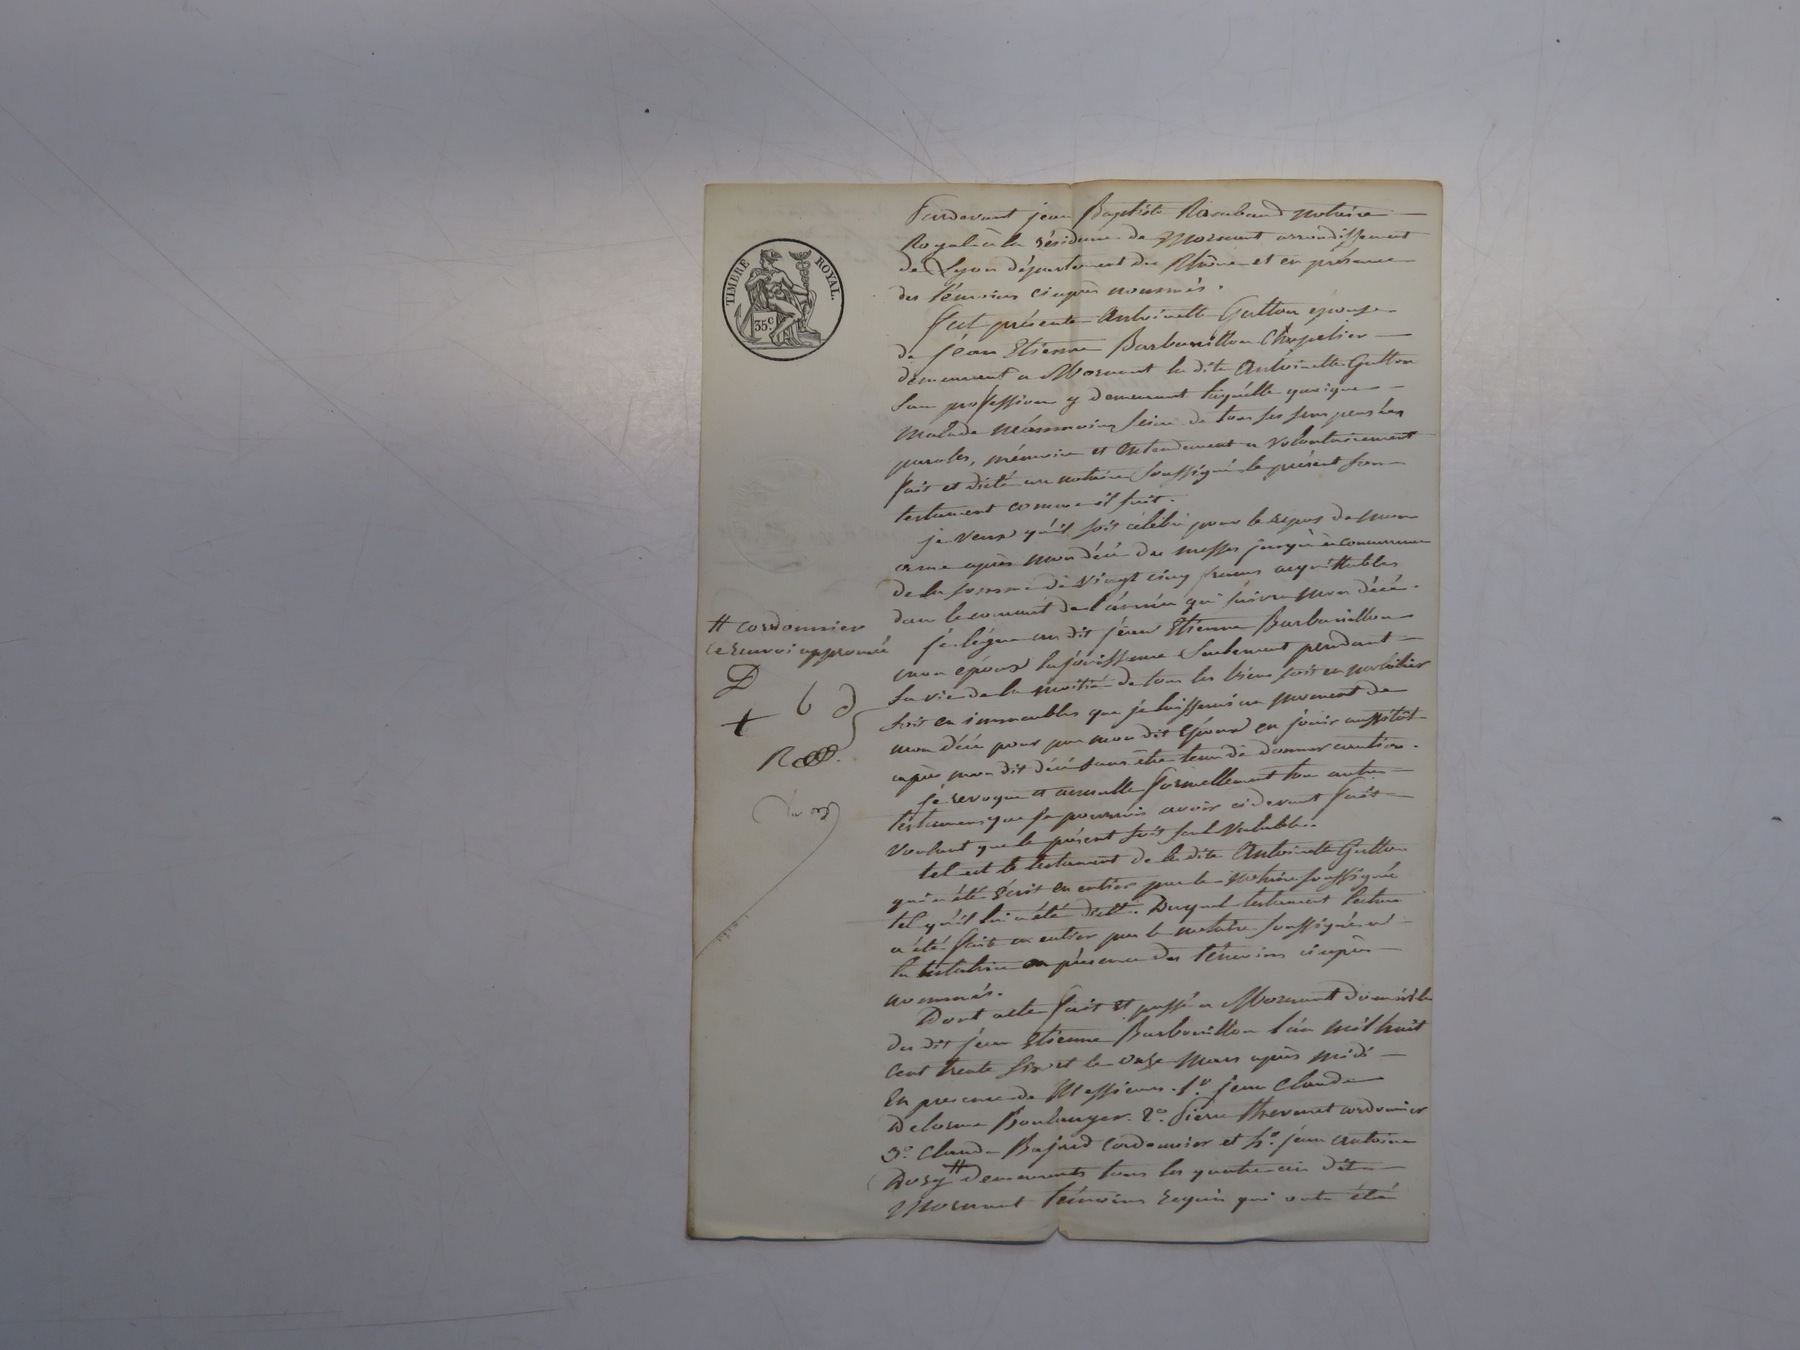 TIMBRE ROYAL.
35c
Pardevant jean Baptiste notaire
Royal à la résidence de Mornant arrondissement
de Lyon département du Rhône et en présence
des témoins ciaprès nommés.
fut présente Antoinette Gutton épouse
de jean Etienne Barbouillon Chapelier
demeurant a Mornant la dite Antoinette Gutton
san profession y demeurant laquelle quoique
malade néanmoins seine de tous ses sens pensées
paroles, mémoire et entendement a volontairement
fait et dicté au notaire soussigné le présent son
testament comme il suit.
je veux qu'il soit célébré pour le repos de mon
ame après mon décé des messes jusqu'à concurrence
de la somme de vingt cinq francs acquittables
dans le courant de l'année qui suivra mon décé.
je légue au dit jean Etienne Barbouillon
mon époux la jouissance seulement pendant
sa vie de la moitié de tous les biens soit en mobilier
soit en immeubles que je laisserai au moment de
mon décé pour par mon dit époux en jouir aussitôt
après mon dit décé sans être tenu de donner caution.
je revoque et annulle formellement tou autres
testamens que je pourrois avoir cidevant fait
voulant que le présent soit seul valable.
tel est le testament de la dite Antoinette Gutton
qui a été écrit en entier par le notaire soussigné
tel qu'il lui a été dicté. Duquel testament lecture
a été faite en entier par le notaire soussigné a
la testatrice en présence des témoins ciaprès
nommés.
Dont acte fait et passé a Mornant domicile
du dit jean Etienne Barbouillon l'an mil huit
cent trente six et le onze Mars après midi
En presence de Messieurs. 1o. jean Claude
Delorme Boulanger. 2o. Pierre thevenet cordonnier
3o. Claude cordonnier et 4o. jean antoine
# demeurants tous les quatre au dit
Mornant témoins requis qui ont été
# cordonnier
ce renvoi approuvé
D
b d